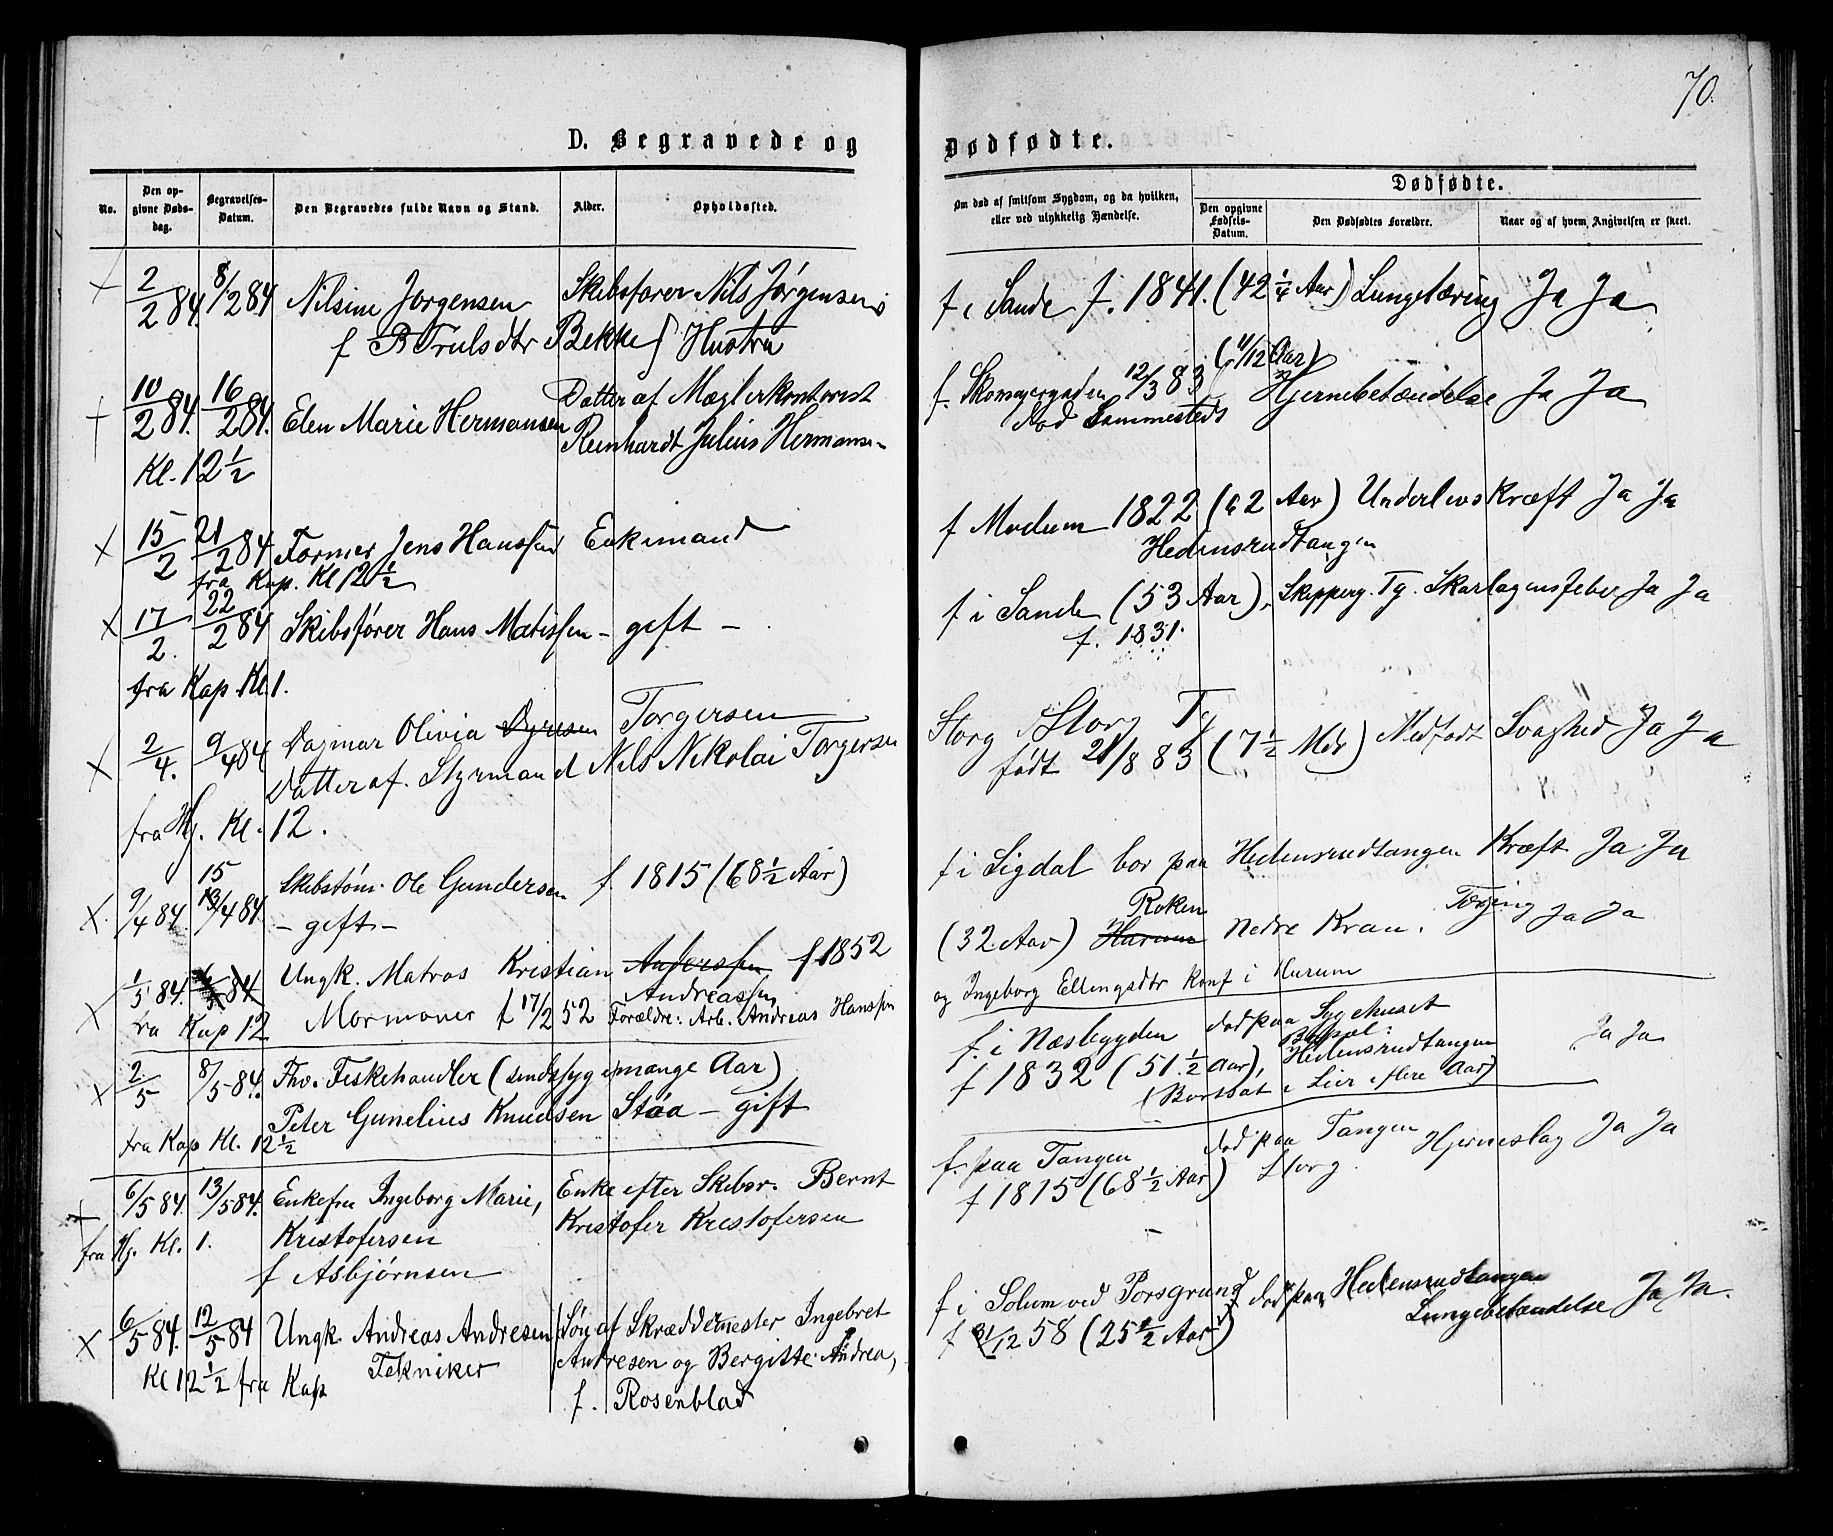 70.
D. Begravede og
Dødfødte.
No.
Den opgivne Dødsdag.
Begravelses-Datum.
Den Begravedes fulde Navn og Stand.
Alder.
Opholdssted.
Om død af smitsom Sygdom, og da hvilken, eller ved ulykkelig Hændelse.
Dødfødte.
Den opgivne Fødsels-Datum.
Den Dødfødtes Forældre.
Naar og af hvem Angivelsen er skeet.
2/2 84. 8/2 84 Nilsine Jorgensen Skibsfører Nils Jørgensens
f B Trulsdtr Bekke Hustru
f i Sande f. 1841. (42 1/4 Aar) Lungetæring Ja Ja
10/2 84. 16/2 84. Elen Marie Hermansen Datter af Mæglerkontorist
Reinhardt Julius Hermansen
Kl. 12 1/2
f. Skomagergaden 12/3 83 (11/12 Aar) Hjernebetændelse Ja Ja
død Sammesteds
15/2 21/2 84 Former Jens Hanssen Enkimand
fra Kap. Kl 12 1/2
f Modum 1822 (62 Aar) Underlivskræft Ja Ja
Hedensrudtangen
17/2. 22/2 84 Skibsfører Hans Matissen - gift -
fra Kap Kl 1.
f i Sande (53 Aar), Skipperg. Tg. Skarlagensfeber Ja Ja
f. 1831.
2/4. 9/4 84 Dagmar Olivia Torgersen
Datter af Styrmand Nils Nikolai Torgersen
fra Hj. Kl. 12.
Storg Storg Tg
født 21/8 83 (7 1/2 Mdr) Medfødt Svaghed Ja Ja
9/4 84. 15/4 84. Skibstøm. Ole Gundersen f. 1815 (68 1/2 Aar)
- gift -
f i Sigdal bor paa Hedensrudtangen Kræft Ja Ja
1/5 84. Ungk. Matros Kristian Anderssen f 1852
Andreassen
fra Kap 12 Mormoner f 17/2 52 Forældre: Arb. Andreas Hanssen
Røken
(32 Aar) Hurum Nedre Kran. Tæring Ja Ja
og Ingeborg Ellingsdtr Konf i Hurum
2/5 8/5 84. Fhv. Fiskehandler (sindssyg i mange Aar)
Peter Gunelius Knudsen Støa - gift
fra Kap Kl. 12 1/2
f. i Næsbygden død paa Sygehuset
f 1832 (51 1/2 Aar), Hedensrudtangen Ja Ja
(Bortsat i Lier i flere Aar)
6/5 84. 13/5 84. Enkefru Ingeborg Marie, Enke efter Skibsr. Bernt
Kristofersen Kristofer Kristofersen
fra Hj. Kl. 1.
f Asbjørnsen
f. paa Tangen død paa Tangen Hjerneslag Ja Ja
f 1815 (68 1/2 Aar) Storg.
6/5 84. 12/5 84 Ungk. Andreas Andresen Søn af Skræddemester Ingebret
Tekniker Andresen og Bergitte Andrea,
Kl 12 1/2 fra Kap f. Rosenblad
f i Solum ved Porsgrund død paa Hedensrudtangen
f 31/12 58 (25 1/2 Aar) Lungebetændelse Ja Ja.